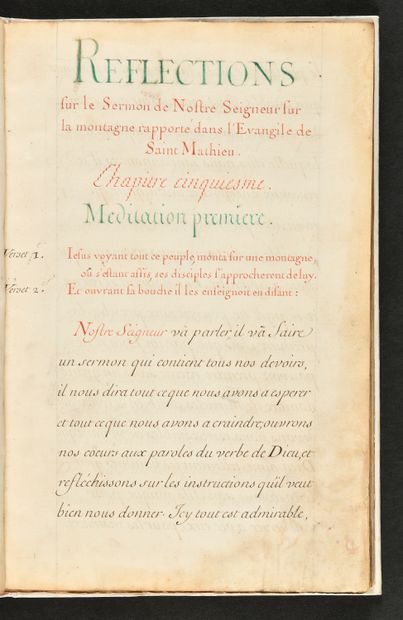 REFLECTIONS
sur le Sermon de Nostre Seigneur sur
la montagne rapporté dans l'Evangile de
Saint Mathieu.
Chapitre cinquiesme.
Meditation premiere.
Verset 1. Iesus voyant tout ce peuple, monta sur une montagne,
où s'estant assis, ses disciples s'approcherent de luy.
Verset 2. Et ouvrant sa bouche il les enseignoit en disant :
Nostre Seigneur và parler, il và faire
un sermon qui contient tous nos devoirs,
il nous dira tout ce que nous avons a esperer
et tout ce que nous avons a craindre, ouvrons
nos coeurs aux paroles du verbe de Dieu, et
refléchissons sur les instructions qu'il veut
bien nous donner. Icy tout est admirable,